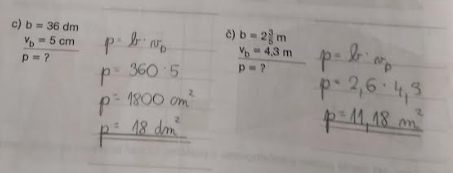 c) b = 36 dm
v_b = 5 cm
p = ?
p = b · v_b
p = 360 · 5
p = 1800 cm²
p = 18 dm²
č) b = 2 3/5 m
v_b = 4,3 m
p = ?
p = b · v_p
p = 2,6 · 4,3
p = 11,18 m²